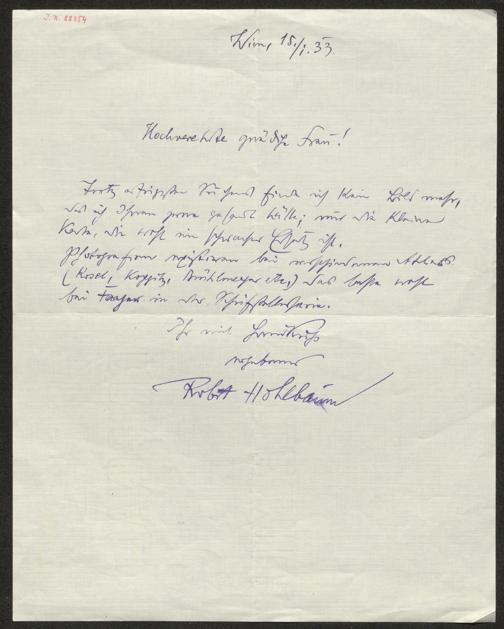 J.N. 88854
Wien, 18./I. 33.
Hochverehrte gnädige Frau!
Trotz Suchens finde ich kein Bild mehr,
das ich Ihnen gerne gesandt hätte; nur die kleine
Karte, die wohl ein schwacher Ersatz ist.
Photografien existieren bei verschiedenen Ateliers
(Kosel, Koppitz, Mühlmeyer etc,) das beste wohl
bei Fayer in der
Ihr mit Handkuß
ergebener
Robert Hohlbaum